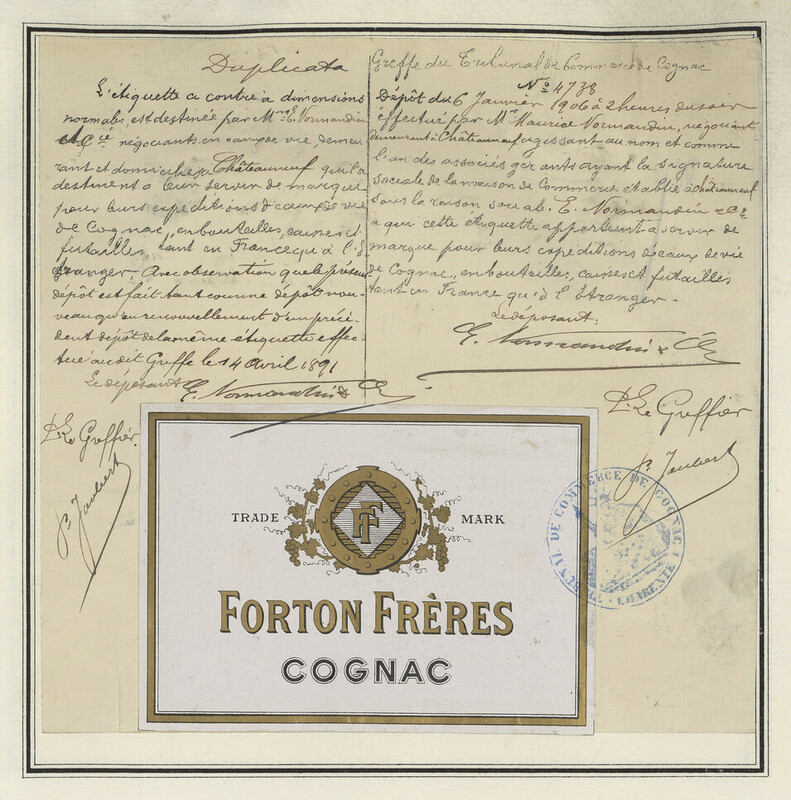 Duplicata
L'étiquette ci contre à dimensions
normales, est destinée par Mrs E. Normandin
et Cie négociants en eaux de vie, demeu
rant et domiciliés à Châteauneuf qui la
destinent à leur servir de marque
pour leurs expéditions d'eaux de vie
de Cognac, en bouteilles, caisses et
futailles, tant en France qu'à l'É
tranger. Avec observation que le présent
dépôt est fait tant comme dépôt nou-
veau qu'en renouvellement d'un précé-
dent dépôt de la même étiquette effec-
tué au dit Greffe le 14 avril 1891
Le déposant E. Normandin & Cie
P. Le Greffier
P. Jaubert
Greffe du Tribunal de Commerce de Cognac
No 4738
Dépôt du 6 Janvier 1906 à 2 heures du soir
effectué par Mr Maurice Normandin, négociant
demeurant à Châteauneuf agissant au nom et comme
l'un des associés gérants ayant la signature
sociale de la maison de Commerce établie à Châteauneuf
sous la raison sociale E. Normandin & Cie
à qui cette étiquette appartient à servir de
marque pour leurs expéditions d'eaux de vie
de Cognac, en bouteilles, caisses et futailles
tant en France qu'à l'Étranger.
Le déposant:
E. Normandin & Cie
P. Le Greffier
P. Jaubert
TRIBUNAL DE COMMERCE DE COGNAC
CHARENTE
TRADE MARK
FF
FORTON FRÈRES
COGNAC